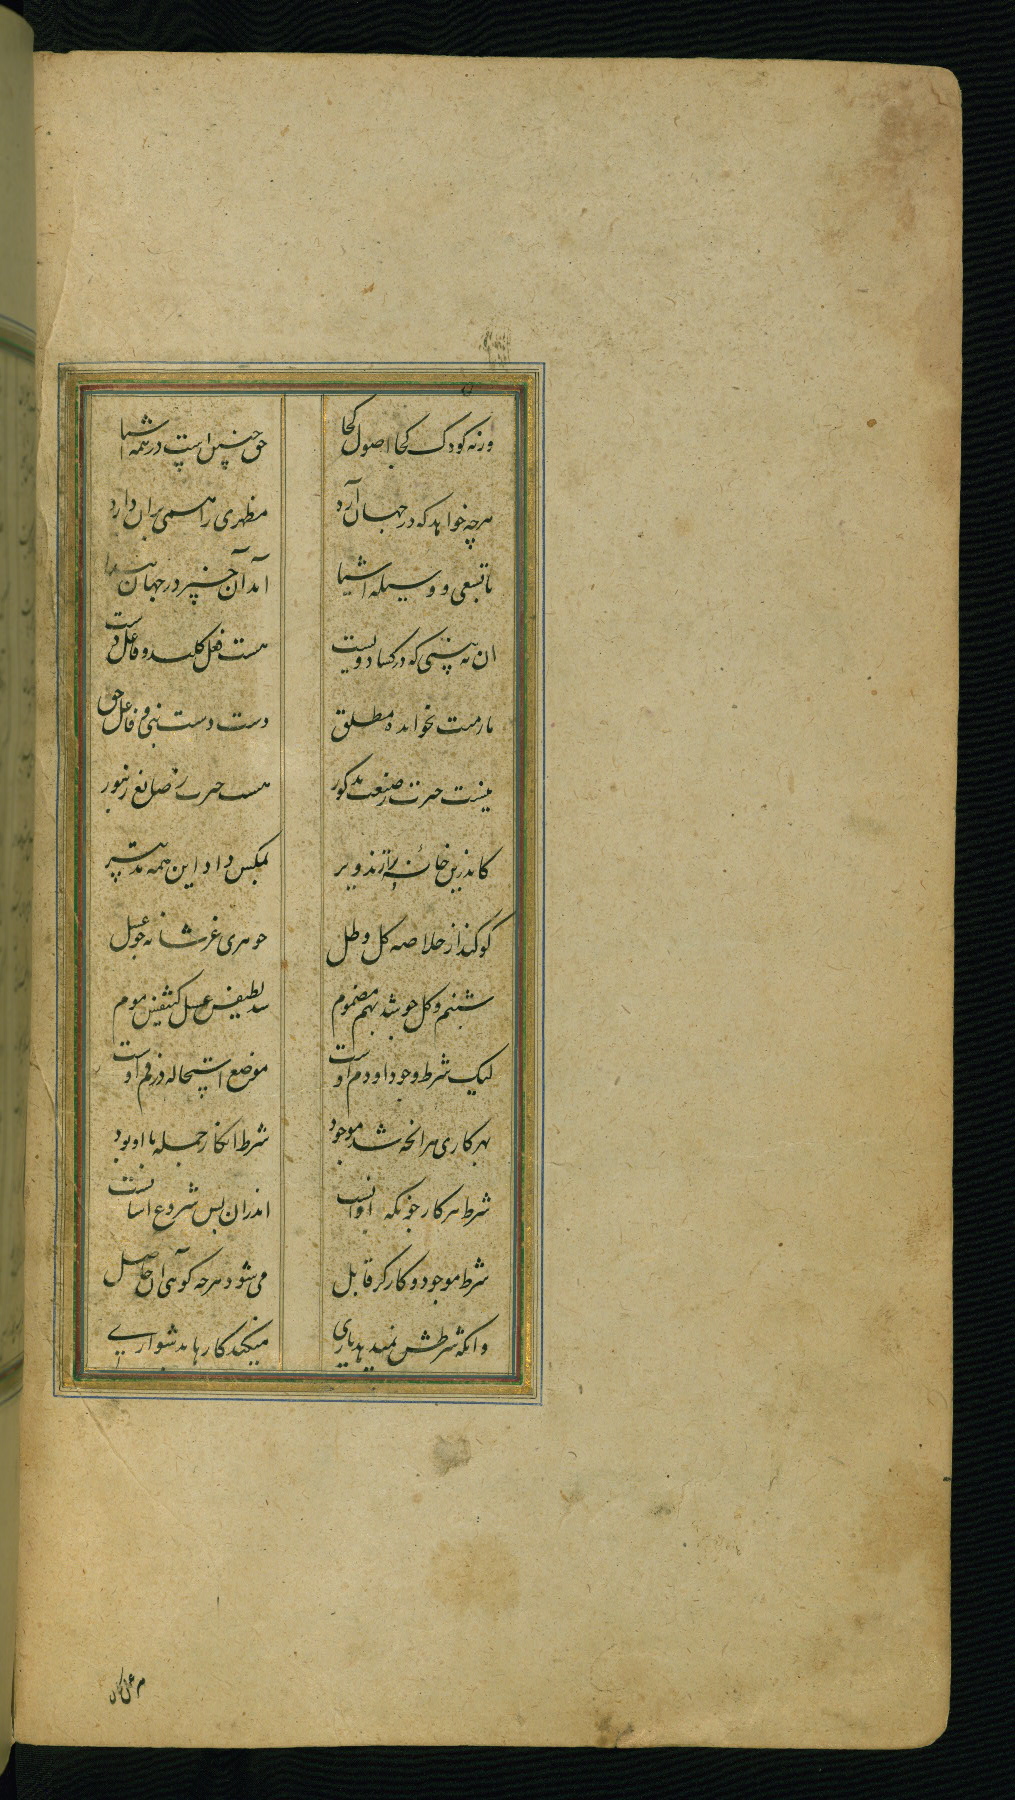 ورنه کودک کجا اصول کجا حق چنین است در همه اشیا
هرچه خواهد که در جهان آرد مظهری را همی بران دارد
تا بسعی و وسیله اشیا آمد آن چیز در جهان پیدا
هست فعل کلید و فاعل دست
مارمیت نخوانده مطلق دست دست نبی و فاعل حق
نیست حیرت ز صنعت مذکور هست حیرت ز صانع زنبور
کاندرین خانهٔ پر از تزویر مگس داد این همه تدبیر
کو کند از خلاصه کل و طل جوهری غر شانه جو عسل
شبنم و کل چو شد بهم مضموم شد لطیفش عسل کثیفش موم
لیک شرط وجود او دم اوست موضع استحاله در فم اوست
بهر کاری هر انچه شد موجود شرط انکار جمله با او بود
شرط هر کار چونکه اندران پس شروع آسانست
شرط موجود و کارکر قابل می شود هرچه کوئی آن حاصل
وانکه شرطش نمیدهد یاری میکند کارها بدشواری